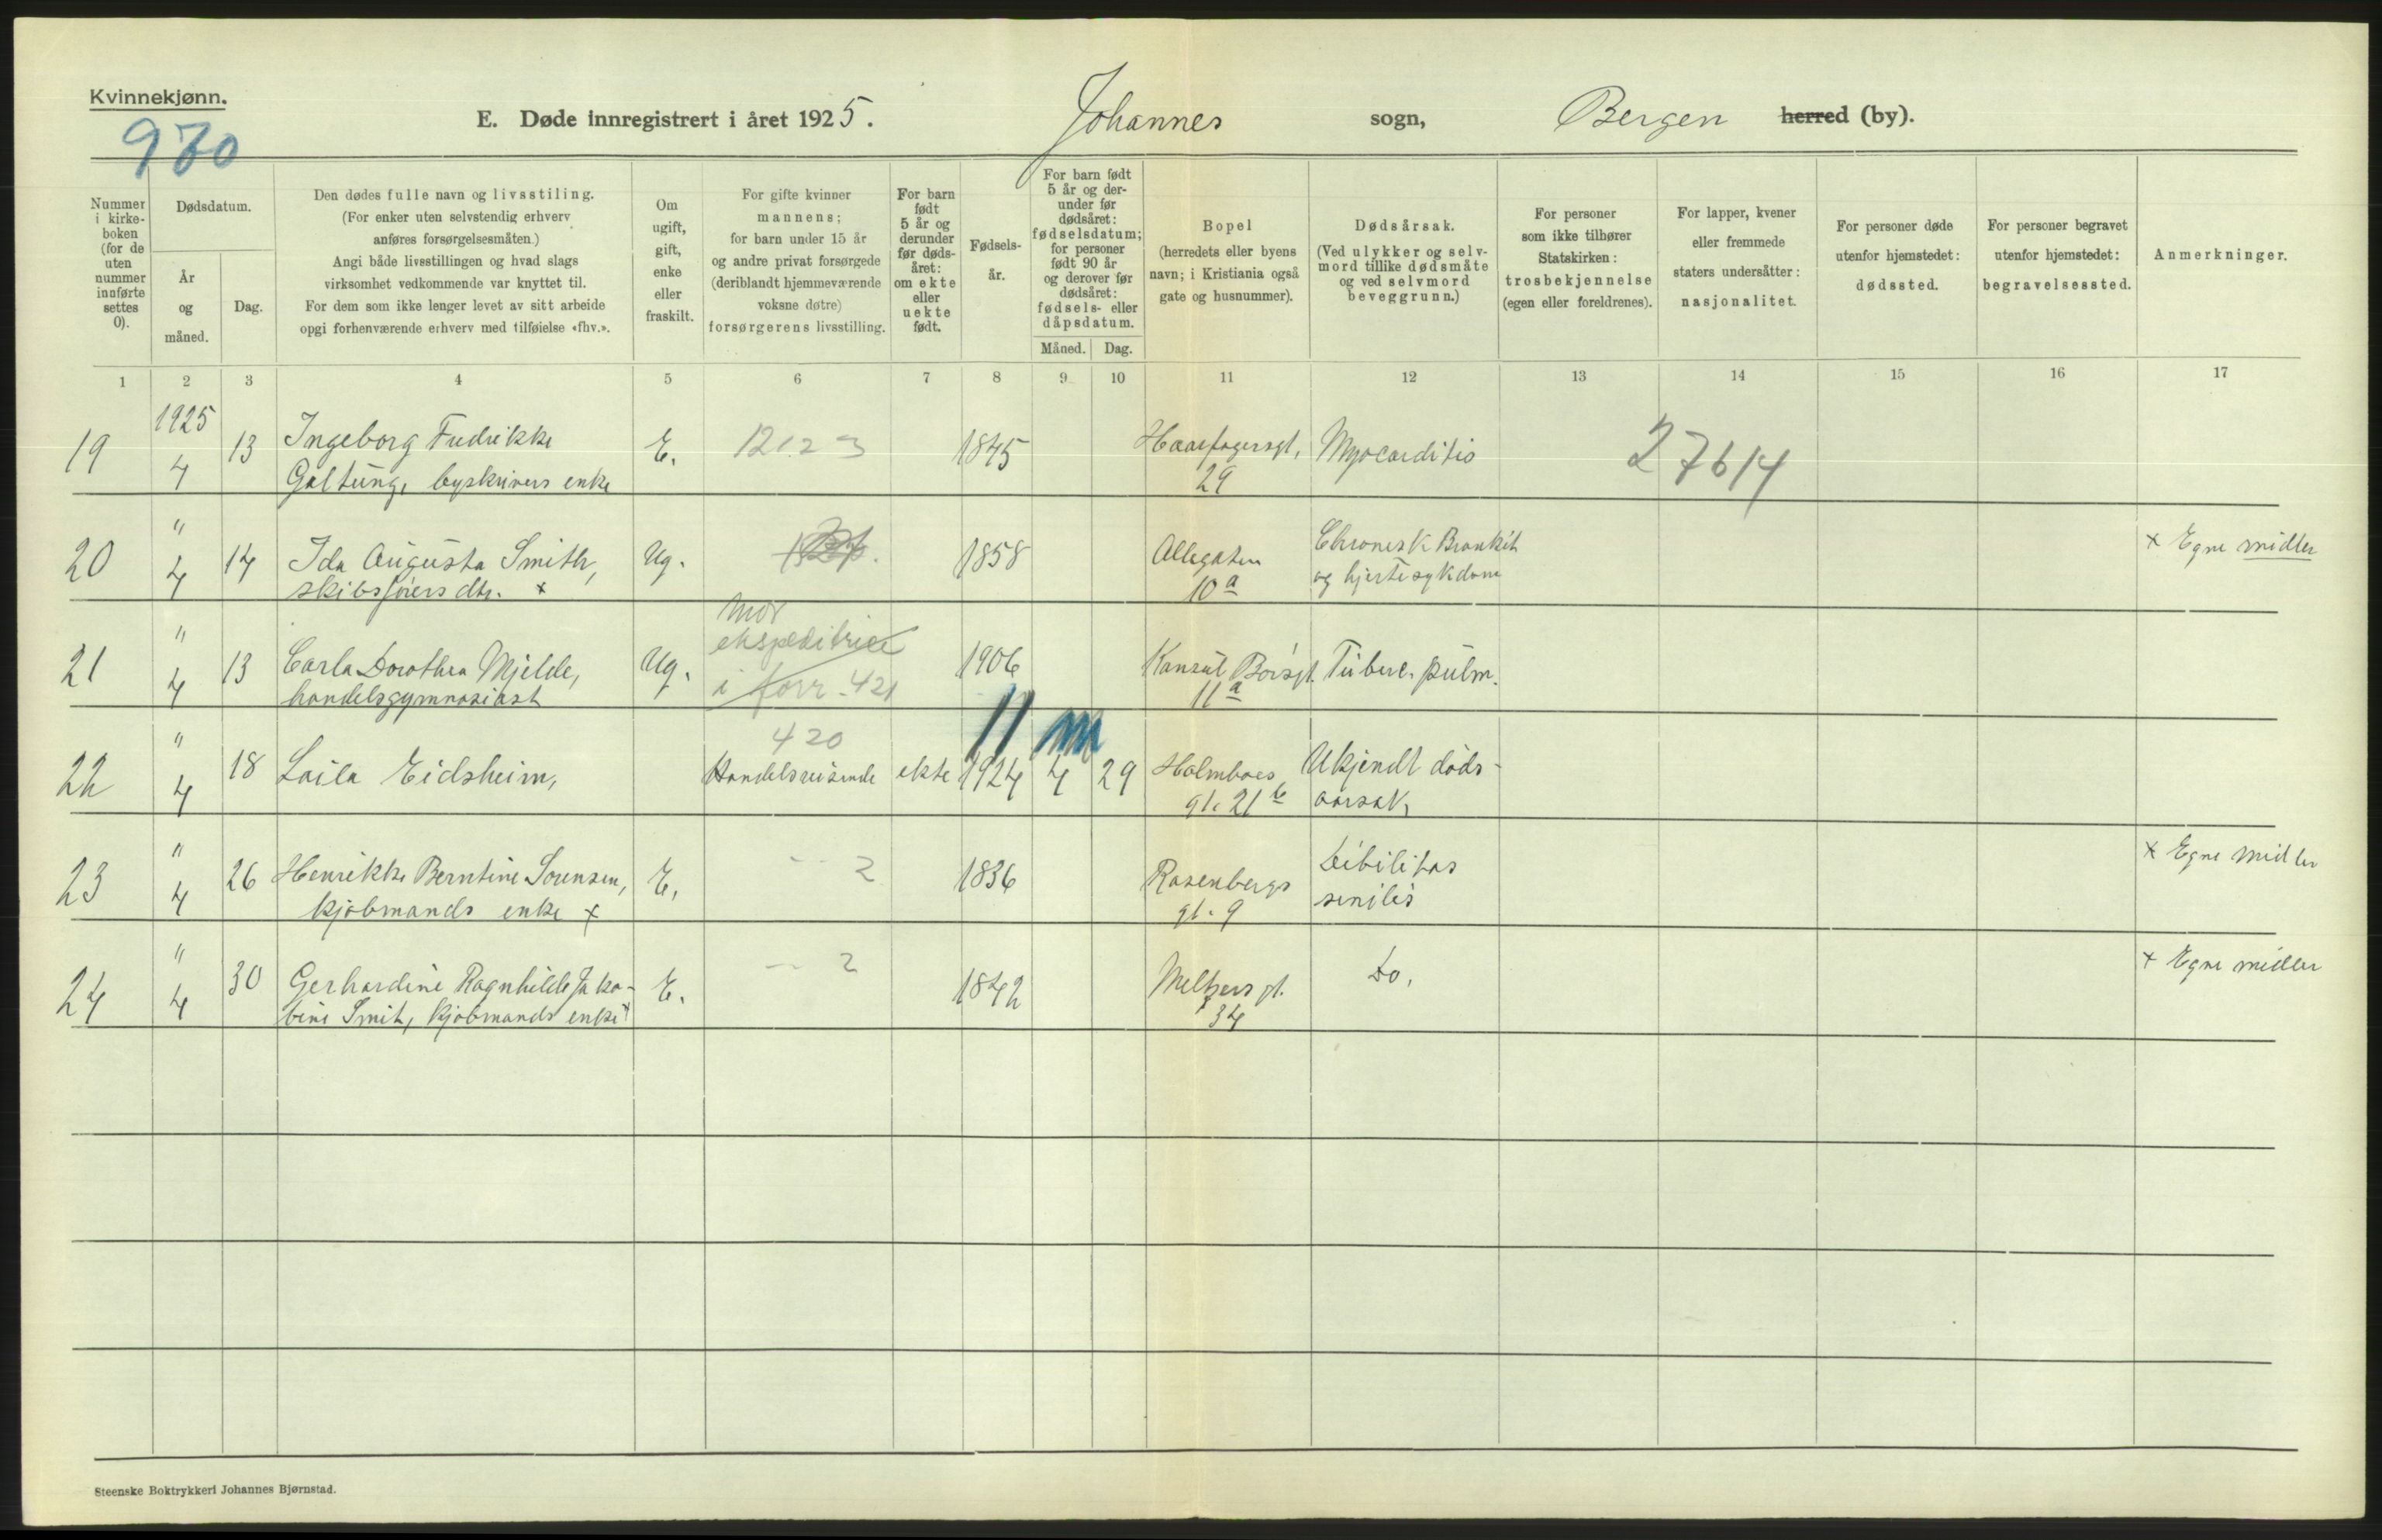 Kvinnekjønn.
970
E. Døde innregistrert i året 1925. Johannes sogn, Bergen herred (by).
Nummer i kirke-boken (for de uten nummer innførte settes 0).
Dødsdatum.
År og måned.
Dag.
Den dødes fulle navn og livsstiling.
(For enker uten selvstendig erhverv
anføres forsørgelsesmåten.)
Angi både livsstillingen og hvad slags
virksomhet vedkommende var knyttet til.
For dem som ikke lenger levet av sitt arbeide
opgi forhenværende erhverv med tilføielse «fhv.».
Om ugift, gift, enke eller fraskilt.
For gifte kvinner
mannens;
for barn under 15 år
og andre privat forsørgede
(deriblandt hjemmeværende
voksne døtre)
forsørgerens livsstilling.
For barn født 5 år og derunder før døds-året: om ekte eller uekte født.
Fødsels-år.
For barn født 5 år og der-under før dødsåret: fødselsdatum; for personer født 90 år og derover før dødsåret: fødsels- eller dåpsdatum.
Måned. Dag.
Bopel
(herredets eller byens
navn; i Kristiania også
gate og husnummer).
Dødsårsak.
(Ved ulykker og selv-
mord tillike dødsmåte
og ved selvmord
beveggrunn.)
For personer
som ikke tilhører
Statskirken:
trosbekjennelse
(egen eller foreldrenes).
For lapper, kvener
eller fremmede
staters undersåtter:
nasjonalitet.
For personer døde
utenfor hjemstedet:
dødssted.
For personer begravet
utenfor hjemstedet:
begravelsessted.
Anmerkninger.
1 2 3 4 5 6 7 8 9 10 11 12 13 14 15 16 17
1925
19 4 13 Ingeborg Fredrikke E. 1845 Haarfagersgt. Myocarditis 27614
Galtung, byskrivers enke 29
20 " 4 14 Ida Augusta Smith, Ug. 1858 Allegaten Chronisk Bronkit × Egne midler
skibsførers dtr. × 10a og hjertesykdom
mor
ekspeditrice
21 " 4 13 Carla Dorothea Mjelde, Ug. 1906 Konsul Børsgt. Tuberc. pulm.
handelsgymnasiast i forr. 421 11a
420 11 m
22 " 4 18 Laila Eidsheim, Handelsreisende ekte 1924 4 29 Holmboes Ukjendt døds-
gt. 21b aarsak
23 " 4 26 Henrikke Berntine Sørensen, E. 2 1836 Rosenbergs Debilitas × Egne midler
kjøbmands enke × gt. 9 senilis
24 " 4 30 Gerhardine Ragnhilde Jako- E. 2 1842 Meltzers gt. Do. × Egne midler
bine Smit, kjøbmands enke × 34
Steenske Boktrykkeri Johannes Bjørnstad.